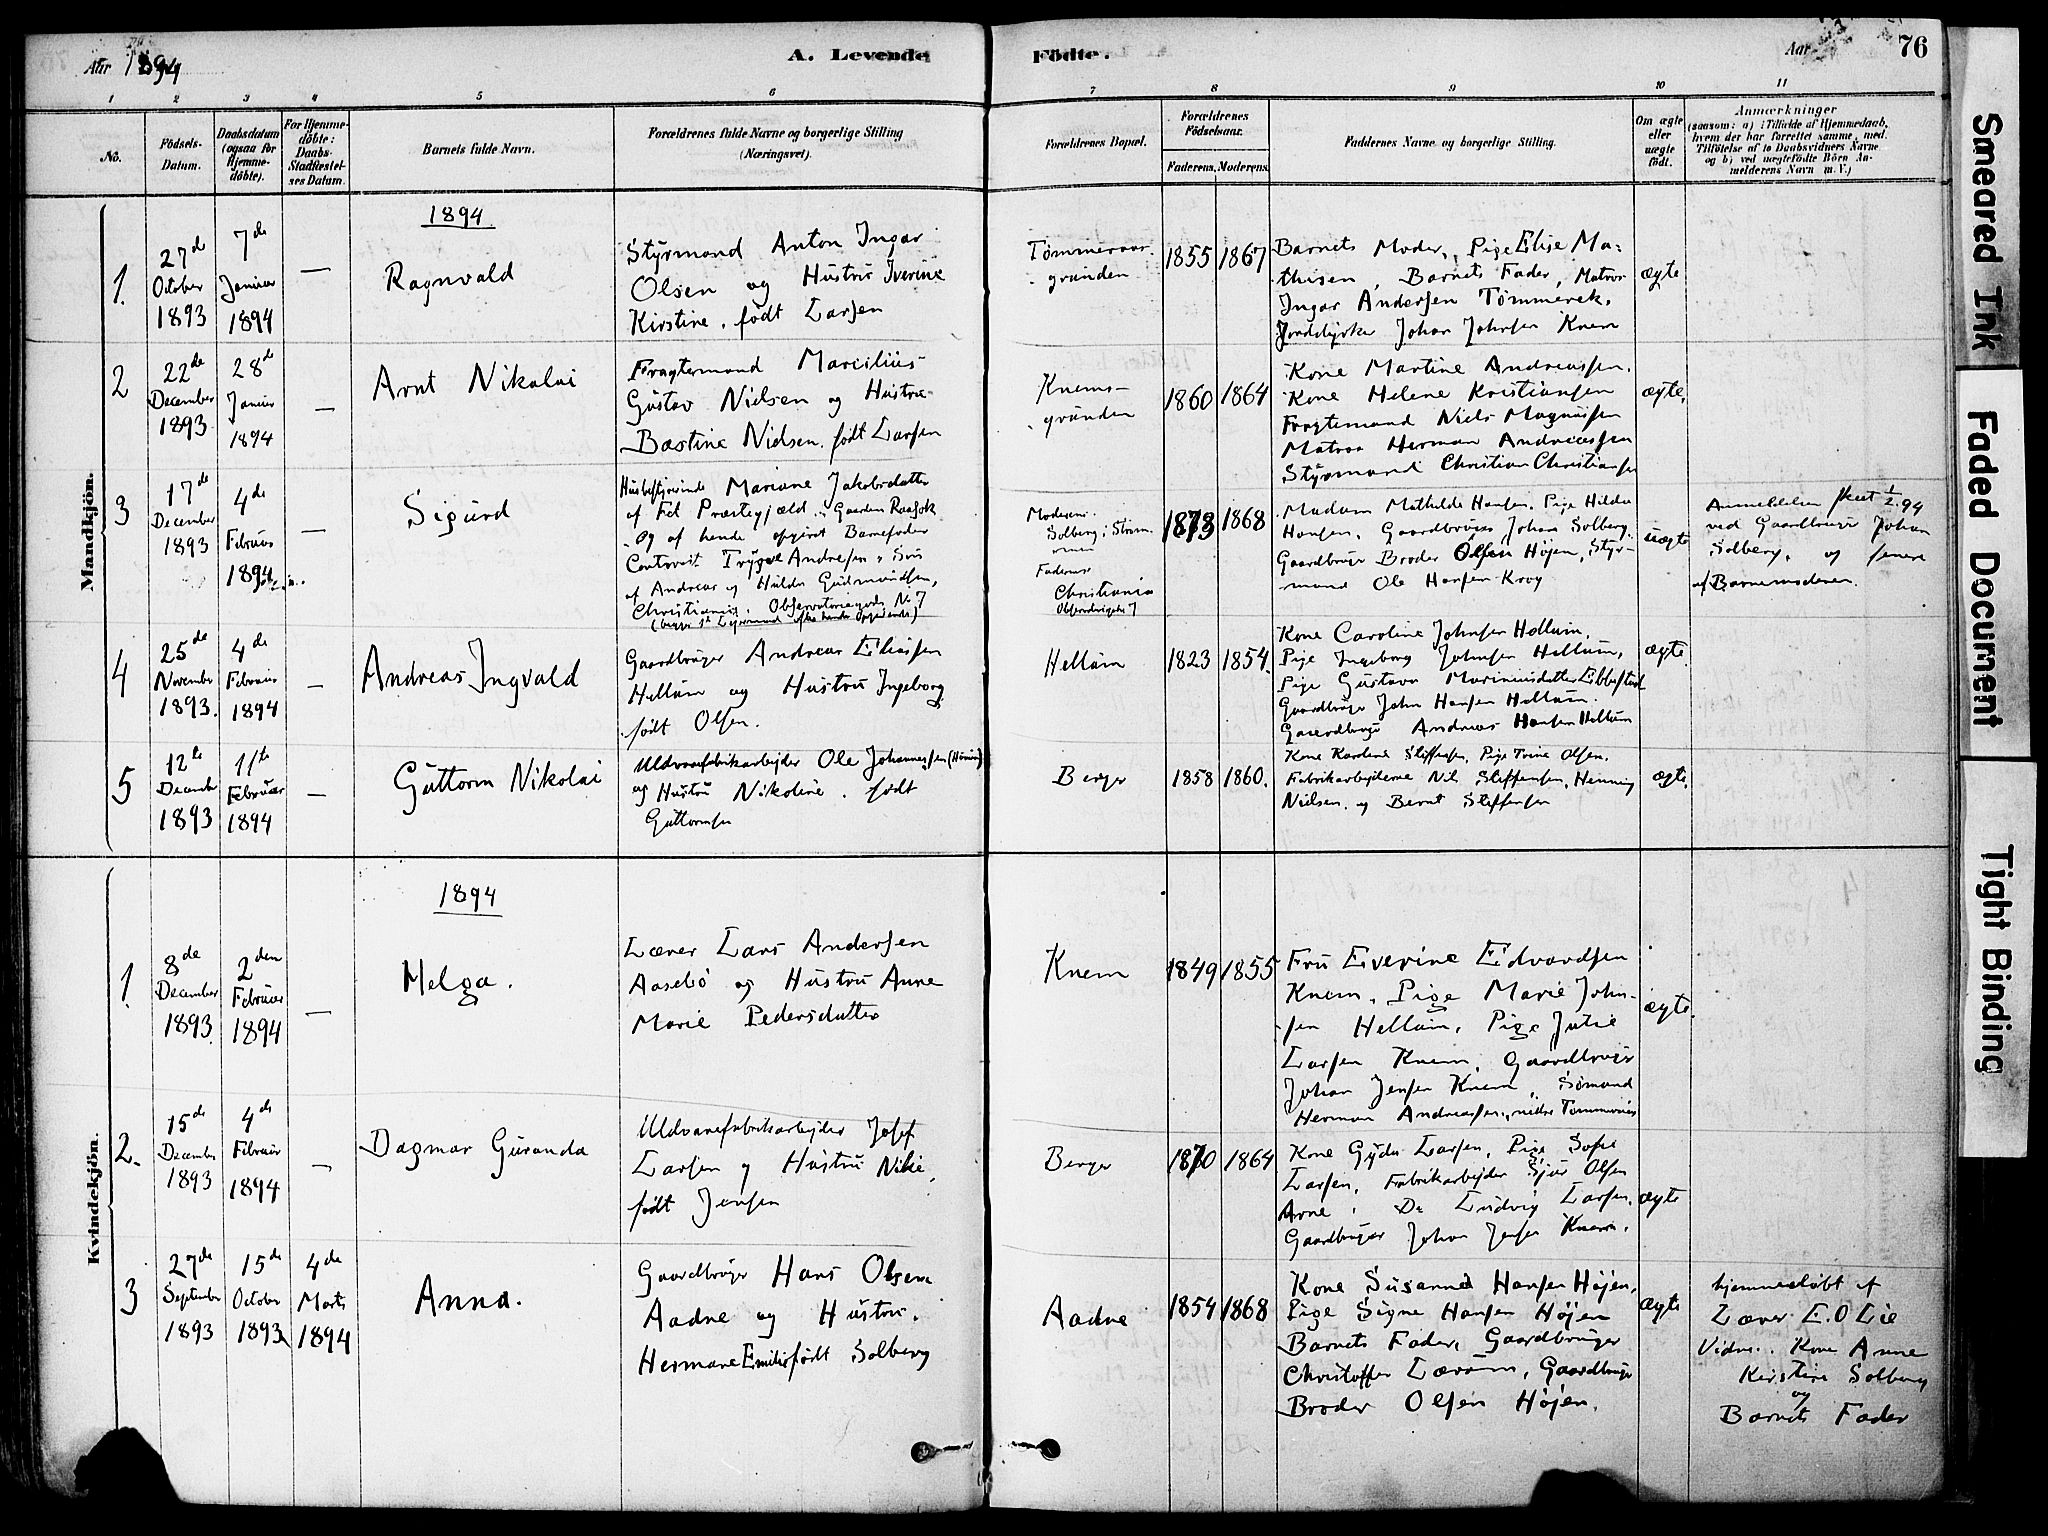 Aar 1894
A. Levende
Födte.
Aar
76
1
2
3
4
5
6
7
8
9
10
11
No.
Födsels-
Datum.
Daabsdatum
(ogsaa for
Hjemme-
döbte).
For Hjemme-
döbte:
Daabs-
Stadfæstel-
ses Datum.
Barnets fulde Navn.
Forældrenes fulde Navne og borgerlige Stilling
(Næringsvei).
Forældrenes Bopæl.
Forældrenes
Födselsaar.
Faderens.
Moderens.
Faddernes Navne og borgerlige Stilling.
Om ægte
eller
uægte
födt.
Anmærkninger
(saasom: a) i Tilfælde af Hjemmedaab,
hvem der har forrettet samme, med
Tilföielse af to Daabsvidners Navne
og b) ved uægtefödte Börn An-
melderens Navn m. V.)
Mandkjön.
1894
1.
27de
October
1893
7de
Januar
1894
—
Ragnvald
Styrmand Anton Ingar
Olsen og Hustru Iverine
Kirstine, født Larsen
grunden
1855
1867
Barnets Moder, Pige Elise Ma-
thisen, Barnets Fader, Matros
Ingar Andersen Tømmerek.
Jorddyrker Johan Johnsen Knem
ægte
2
22de
December
1893
28de
Januar
1894
—
Arnt Nikolai
Fragtemand Marcilius
Gustav Nielsen og Hustru
Bastine Nielsen født Larsen
Knems-
grunden
1860
1864
Kone Martine Andreassen.
Kone Helene Kristiansen
Fragtemand Niels Magnussen
Matros Herman Andreassen
Styrmand Christian Christiansen
ægte.
3
17de
December
1893
4de
Februar
1894
—
Sigurd
Husbestyrerinde Mariane Jakobsdatter
af Fet Præstegjæld, Gaarden
og af hende opgivet Barnefader
Trygve Andresen, Søn
af Andreas og Hilda Gudmundsen,
Christiania, Observatoriegade No 7
Moderens:
Solberg i Strøm-
men
Faderens
Christiania
1873
1868
Madam Mathilde Hansen, Pige Hilda
Hansen, Gaardbruger Johan Solberg
Gaardbruger Broder Olsen Højen, Styr-
mand Ole Hansen Krog
uægte
Anmeldelsen skeet 1/2.94
ved Gaardbruger Johan
Solberg, og senere
af Barnemoderen.
4
25de
November
1893.
4de
Februar
1894
—
Andreas Ingvald
Gaardbruger Andreas Eliassen
Hellum og Hustru Ingeborg
født Olsen.
Hellum
1823
1854.
Kone Caroline Johnsen Hellum,
Pige Ingeborg Johnsen Hellum,
Pige Gustava Marinusdatter Ebbestad
Gaardbruger John Hansen Hellum
Gaardbruger Andreas Hansen Hellum
ægte
5
12te
December
1893
11te
Februar
1894
—
Guttorm Nikolai
Uldvarefabrikarbejder Ole Johannessen
og Hustru Nikoline født
Guttormsen
Berger
1858
1860.
Kone Karoline Steffensen, Pige Trine Olsen.
Fabrikarbejderne Nils Steffensen, Henning
Nielsen, og Bernt Steffensen
ægte.
Kvindekjön.
1894
1.
8de
December
1893.
2den
Februar
1894
—
Helga.
Lærer Lars Andersen
Aasebö og Hustru Anne
Marie Pedersdatter
Knem
1849
1855
Fru Everine Edvardsen
Knem, Pige Marie John-
sen Hellum, Pige Jutie
Larsen Knem, Gaardbruger
Johan Jensen Knem, Sømand
Herman Andreassen,
ægte.
2.
15de
December
1893
4de
Februar
1894
—
Dagmar Guranda
Uldvarefabrikarbejder Josef
Larsen og Hustru
født Jensen
Berger
1870
1864
Kone Gyda Larsen, Pige Sofie
Larsen, Fabrikarbejder Sjur Olsen
Arne, Do Ludvig Larsen,
Gaardbruger Johan Jensen Knem.
ægte
3
27de
September
1893
15de
October
1893
4de
Marts
1894
Anna.
Gaardbruger Hans Olsen
Aadne og Hustru
Hermane Emilie født Solberg
Aadne
1854
1868
Kone Susanne Hansen Højen,
Pige Signe Hansen Højen
Barnets Fader, Gaardbruger
Christoffer Lærum, Gaardbruger
Broder Olsen Højen.
ægte
hjemmedøbt af
Lærer E. O Lie
Vidne: Kone Anne
Kirstine Solberg
og
Barnets Fader
Smeared Ink
Faded Document
Tight Binding